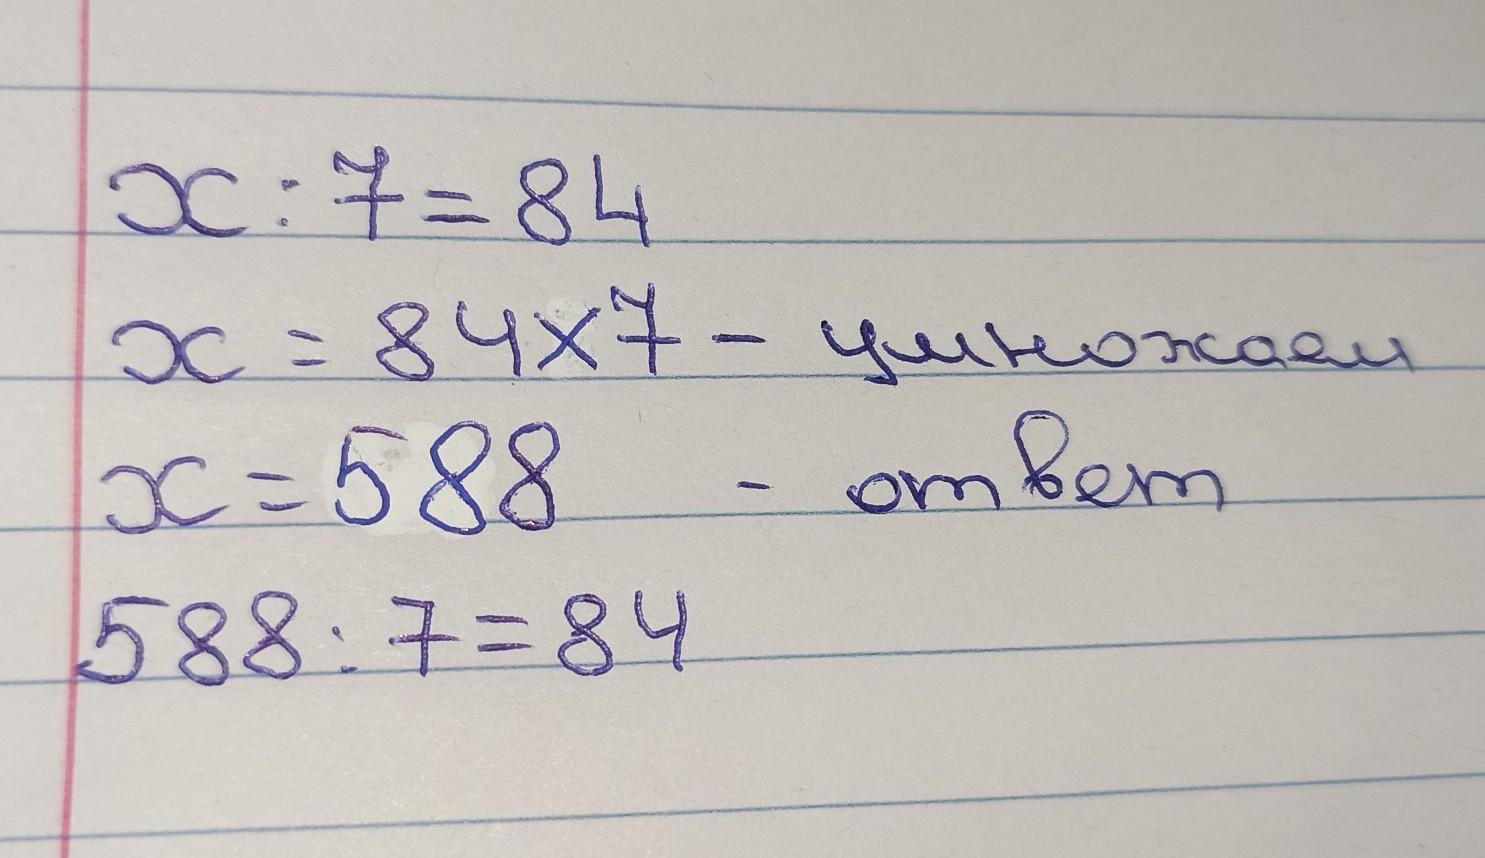 х : 7 = 84
х = 84 × 7 - умножаем
х = 588 - ответ
588 : 7 = 84